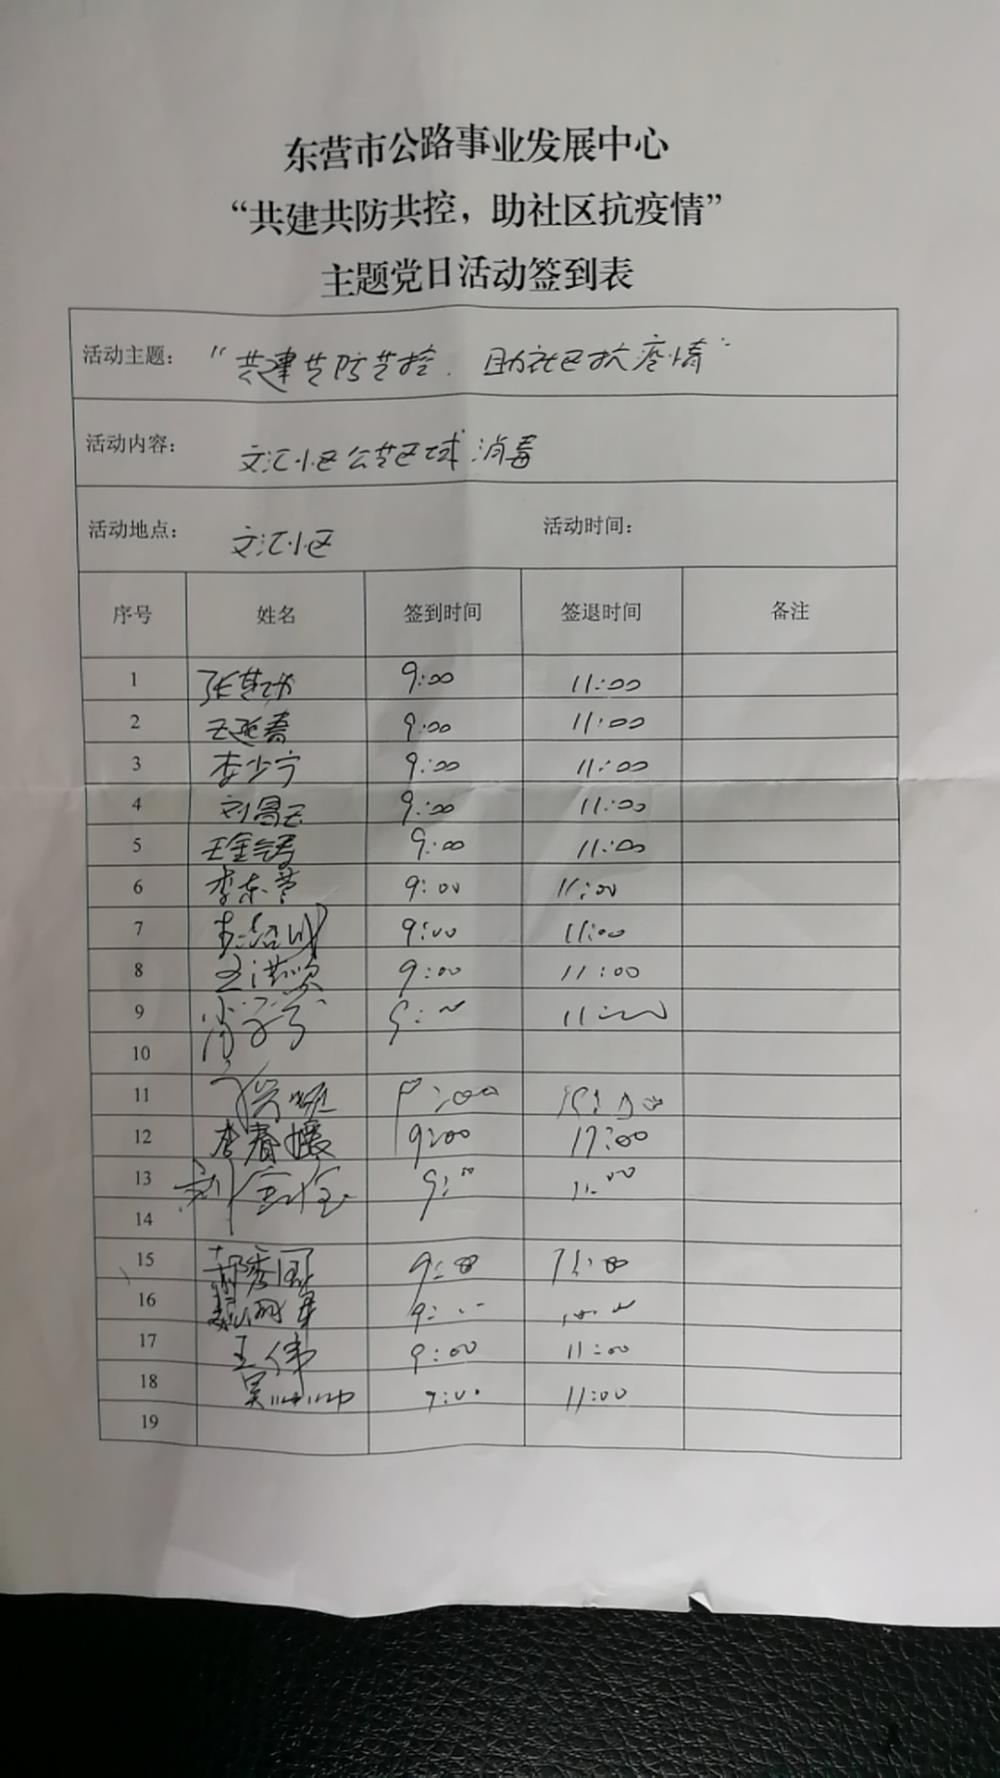 东营市公路事业发展中心
“共建共防共控，助社区抗疫情”
主题党日活动签到表
活动主题： “共建共防共控．助社区抗疫情”
活动内容： 文汇小区公共区域消毒
活动地点： 文汇小区 活动时间：
序号 姓名 签到时间 签退时间 备注
1 9:00 11:00
2 王延春 9:00 11:00
3 李少宁 9:00 11:00
4 刘昌玉 9:00 11:00
5 9:00 11:00
6 李东营 9:00 11:00
7 9:00 11:00
8 王洪 9:00 11:00
9 9: 11:00
10
11 9:00
12 李春 9:00 17:00
13 刘宝 9:00 11:00
14
15 郝秀国 9:00 11:00
16 9:
17 王伟 9:00 11:00
18 吴 9:00 11:00
19